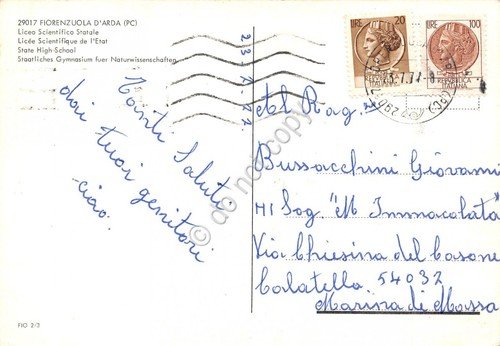 29017 FIORENZUOLA D'ARDA (PC)
Liceo Scientifico Statale
Licée Scientifique de l'Etat
State High School
Staatliches Gymnasium fuer Naturwissenschaften
LIRE 20
LIRE 100
REPUBBLICA
ITALIANA
Tanti Saluti
dai tuoi genitori
ciao.
Al Rag.
Bussacchini Giovanni
HI Sog. "M Immacolata"
Via Chiesina del Casone
Calatella 54032
Marina di Massa
do not copy
FIO 2/3